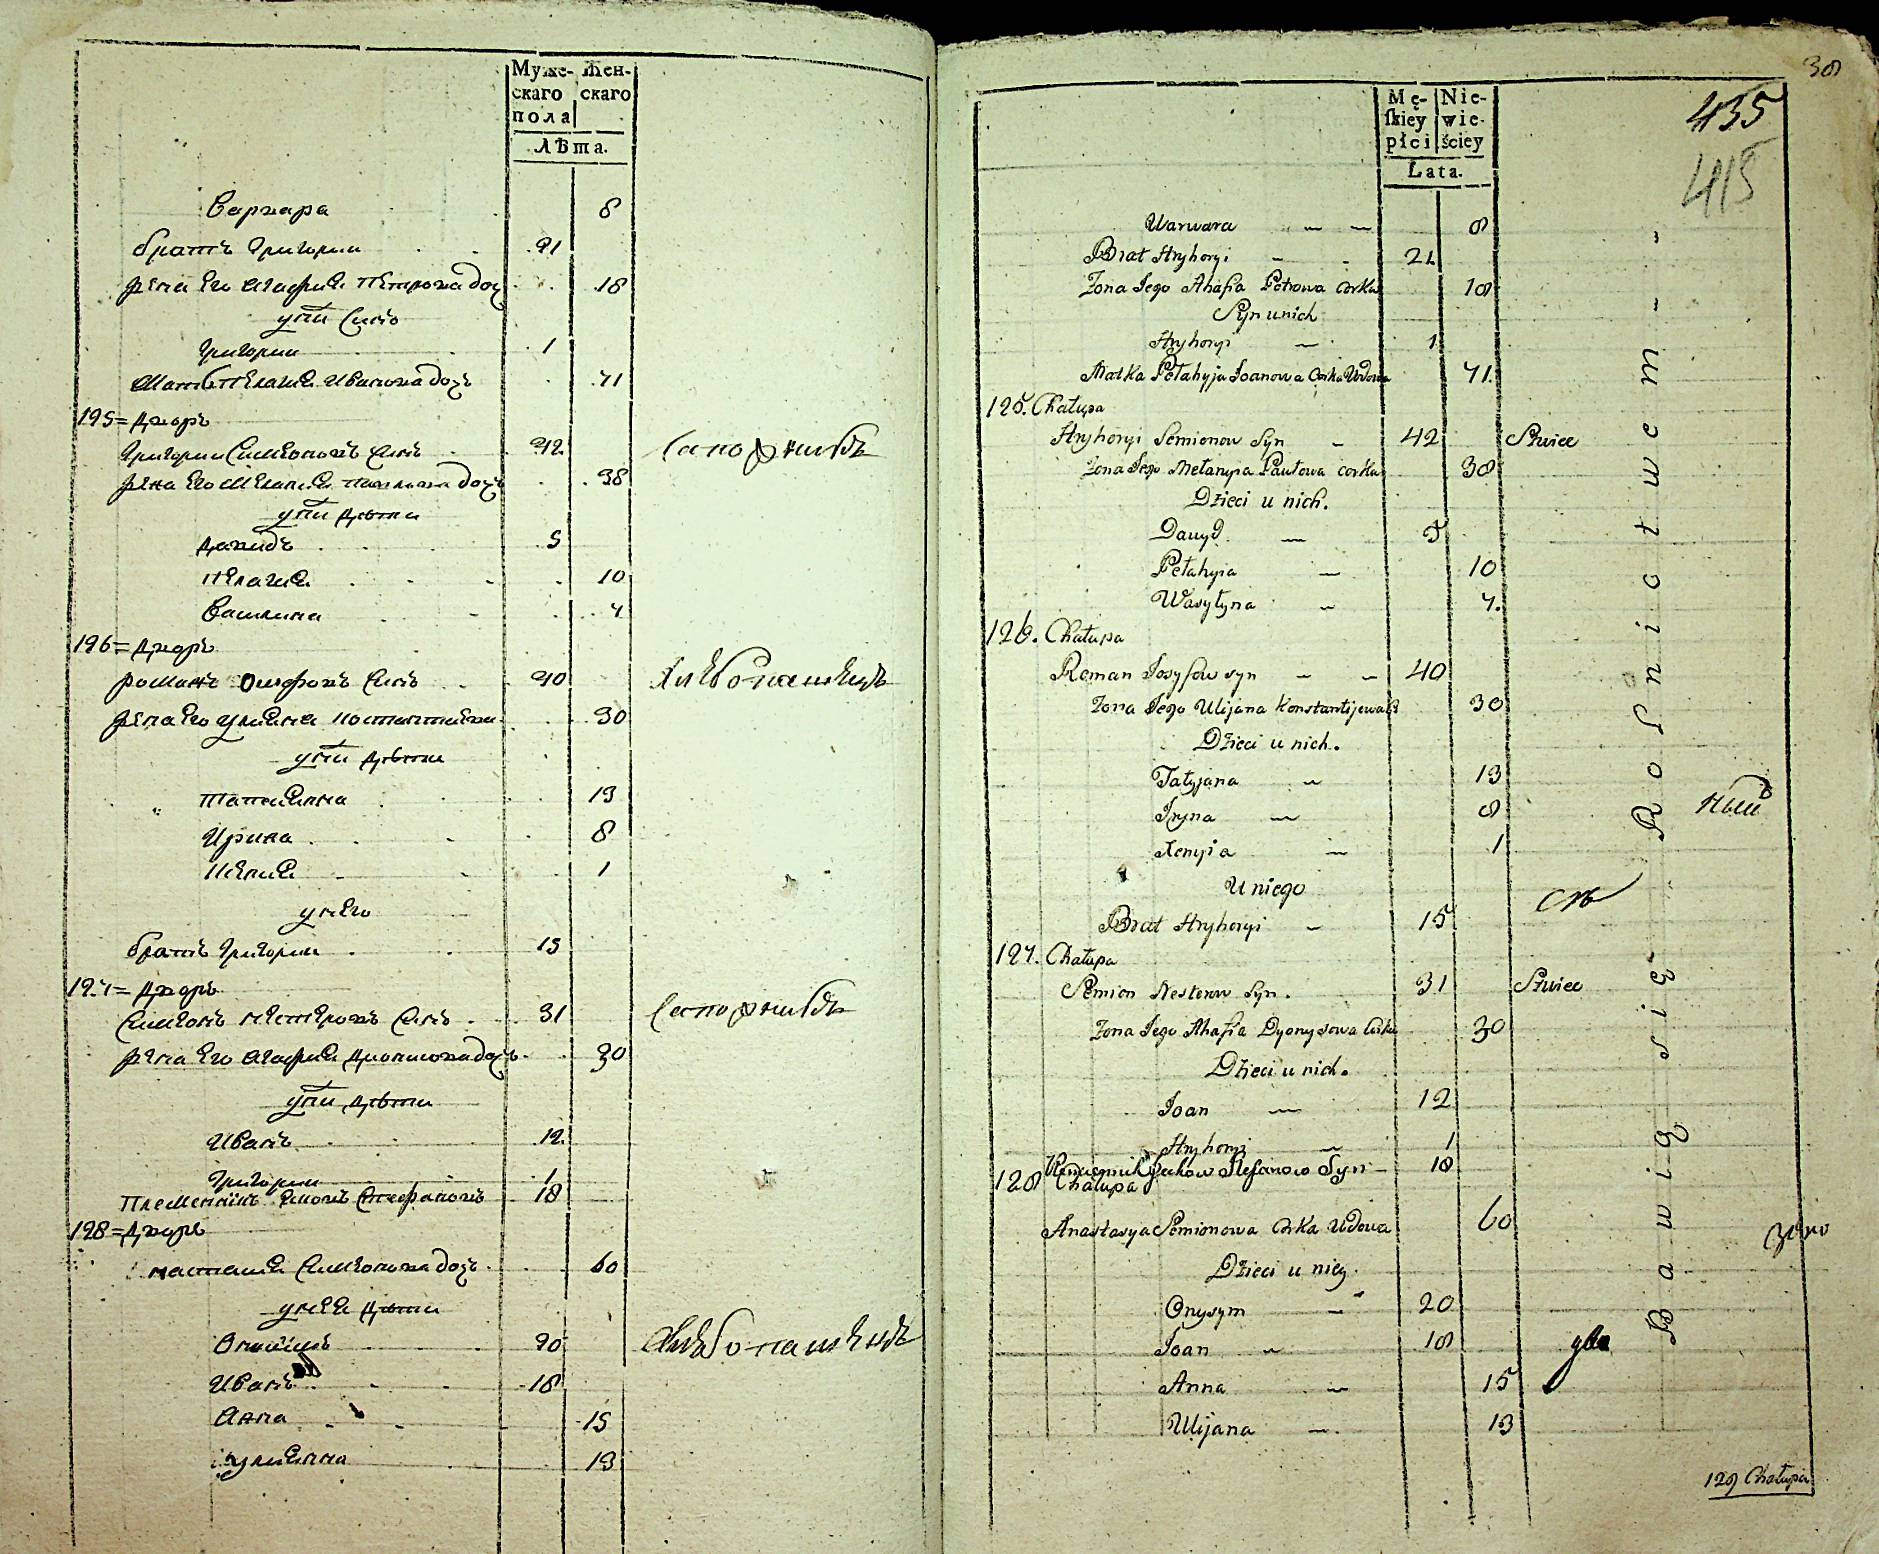 Муже- Жен-
скаго скаго
пола
Лѣта.
Варвара 8
братъ Григории 21
жена Его Агафия Петрова доч 18
у них Синъ
Григории 1
Мать Пелагия Иванова дочъ 71
125 = Дворъ
Григории Симионовъ Синъ 42 Сапожникъ
жена Его Мелания Павлова дочъ 38
у них Дѣти
Давидъ 5
Пелагия 10
Василина 4
126 = Дворъ
Романъ Осифовъ Синъ 40 Хлѣбопашецъ
жена Его Улияна Константиева 30
у них Дѣти
Татияна 13
Ирина 8
Ксения 1
у него
братъ Григории 15
127 = Дворъ
Симеонъ Нестеровъ Синъ 31 Сапожникъ
жена Его Агафия Дионисова дочъ 30
у них Дѣти
Иванъ 12
Григории 1
Племенникъ Яковъ Стефановъ 18
128 = Дворъ
Настасия Симионова дочъ 60
у неи Дѣти
Онисимъ 20 Хлѣбопашецъ
Иванъ 18
Анна 15
Улияна 13
38
435
415
Mę- Nie-
skiey wie-
płci ściey
Lata.
Warwara 8
Brat Hryhoryi 21
Żona Jego Ahafia Petrowa corka 18
Syn u nich
Hryhoryi 1
Matka Pełahyja Joanowa Corka Wdowa 71
125. Chałupa
Hryhoryi Semionow Syn 42 Szwiec
Żona Jego Mełanyia Pawłowa corka 38
Dzieci u nich.
Dawyd 5
Pełahyia 10
Wasyłyna 4.
126. Chałupa
Roman Josyfow syn 40
Żona Jego Ulijana Konstantijewa 30
Dzieci u nich.
Tatyjana 13
Iryna 8
Xenyia 1
U niego
Brat Hryhoryi 15
127. Chałupa
Semion Nesterow Syn. 31 Szwiec
Żona Jego Ahafia Dyonysowa Corka 30
Dzieci u nich.
Joan 12
Hryhoryi 1
Jakow Stefanow Syn 18
128 Chałupa
Anastasya Semionowa Corka Wdowa 60
Dzieci u niey.
Onysym 20
Joan 18
Anna 15
Ulijana 13
Bawią Się Rolnictwem
ный
съ
два
129 Chałupa